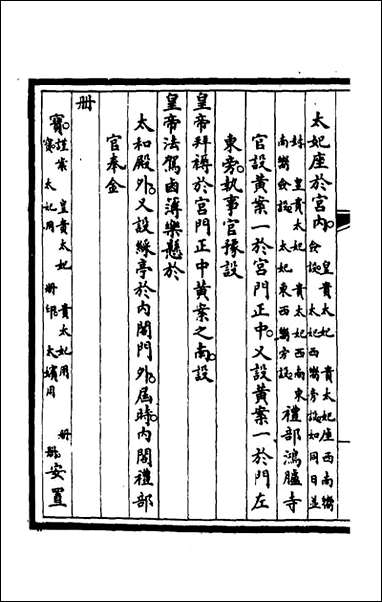 太妃座於宮内
皇貴太妃 貴太妃座西南嚮
僉設 太妃西嚮旁設如同日並
封 皇貴太妃 貴太妃西南東
南嚮僉設 太妃東西嚮旁設
禮部鴻臚寺
官設黃案一於宮門正中又設黃案一於門左
東旁執事官豫設
皇帝拜褥於宮門正中黃案之南設
皇帝法駕鹵簿樂懸於
太和殿外又設綵亭於内閣門外屆時内閣禮部
官奉金
冊
寶
謹案 皇貴太妃 貴太妃用 冊
寶 太妃用 冊印 太嬪用 冊
安置